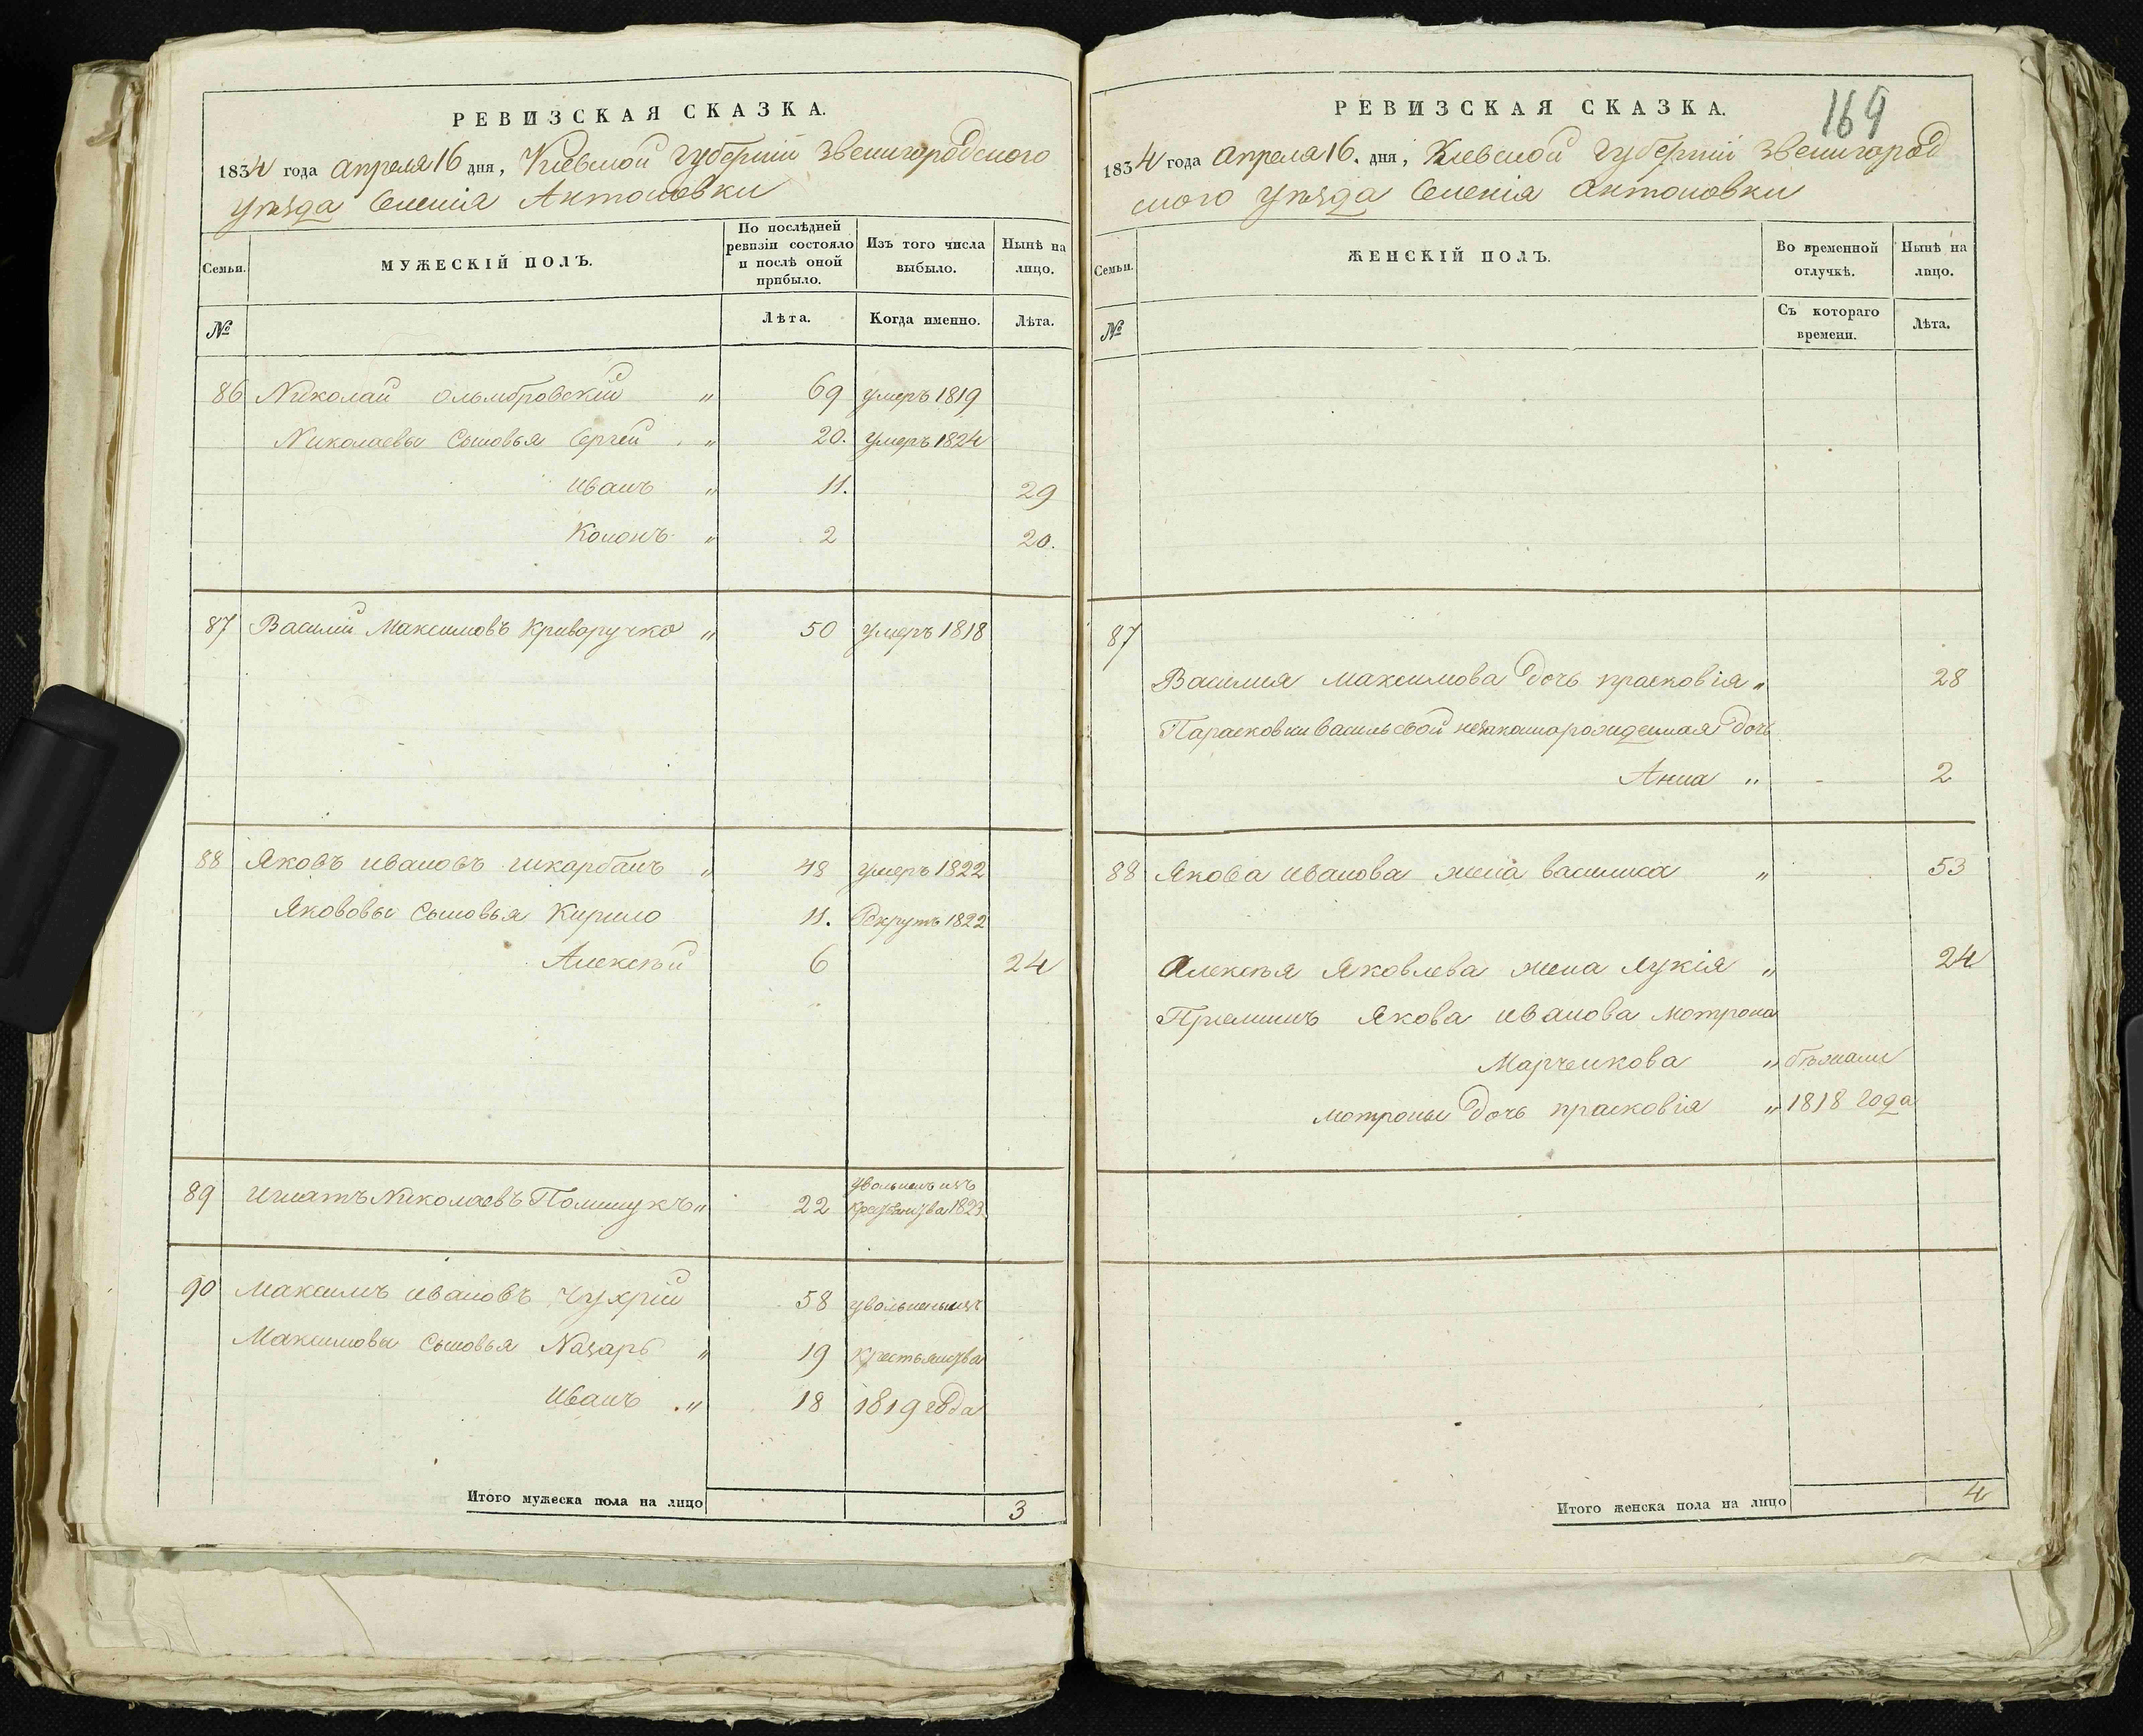 РЕВИЗСКАЯ СКАЗКА.
1834 года Апреля 16 дня, Кіевской Губерніи Звенигородского
уѣзда Селенія Антоновки
Семьи.
МУЖЕСКІЙ ПОЛЪ.
По послѣдней ревизіи состояло и послѣ оной прибыло.
Изъ того числа выбыло.
Нынѣ на лицо.
№
Лѣта.
Когда именно.
Лѣта.
86 Николай Ольмбровскій " 69 умеръ 1819
Николаевы Сыновья Сергей " 20. умеръ 1824
Иванъ " 11. 29
Кононъ " 2 20.
87 Василій Максимовъ Криворучко " 50 умеръ 1818
88 Яковъ Ивановъ Шкарбанъ " 48 умеръ 1822
Якововы Сыновья Кирило 11. Рекрутъ 1822
Алексѣй 6 24
89 Игнатъ Николаевъ Полищукъ " 22 уволненъ изъ
крестьянства 1823.
90 Максимъ Ивановъ Чухрій 58 уволнены изъ
Максимовы Сыновья Назаръ " 19 крестьянства
Иванъ " 18 1819 года
Итого мужеска пола на лицо 3
169
РЕВИЗСКАЯ СКАЗКА.
1834 года Апреля 16. дня, Кіевской Губерніи Звенигород
ского уѣзда Селенія Антоновки
Семьи.
ЖЕНСКІЙ ПОЛЪ.
Во временной отлучкѣ.
Нынѣ на лицо.
№
Съ котораго времени.
Лѣта.
87
Василия Максимова дочь Прасковія " 28
Парасковии Васильевой незаконорожденная дочь
Анна " - 2
88 Якова Иванова жена Василиса " 53
Алексѣя Яковлева жена Лукія " 24
Приемышъ Якова Иванова Мотрона
Марченкова " бѣжали
Мотроны дочь Прасковія " 1818 года
Итого женска пола на лицо 4